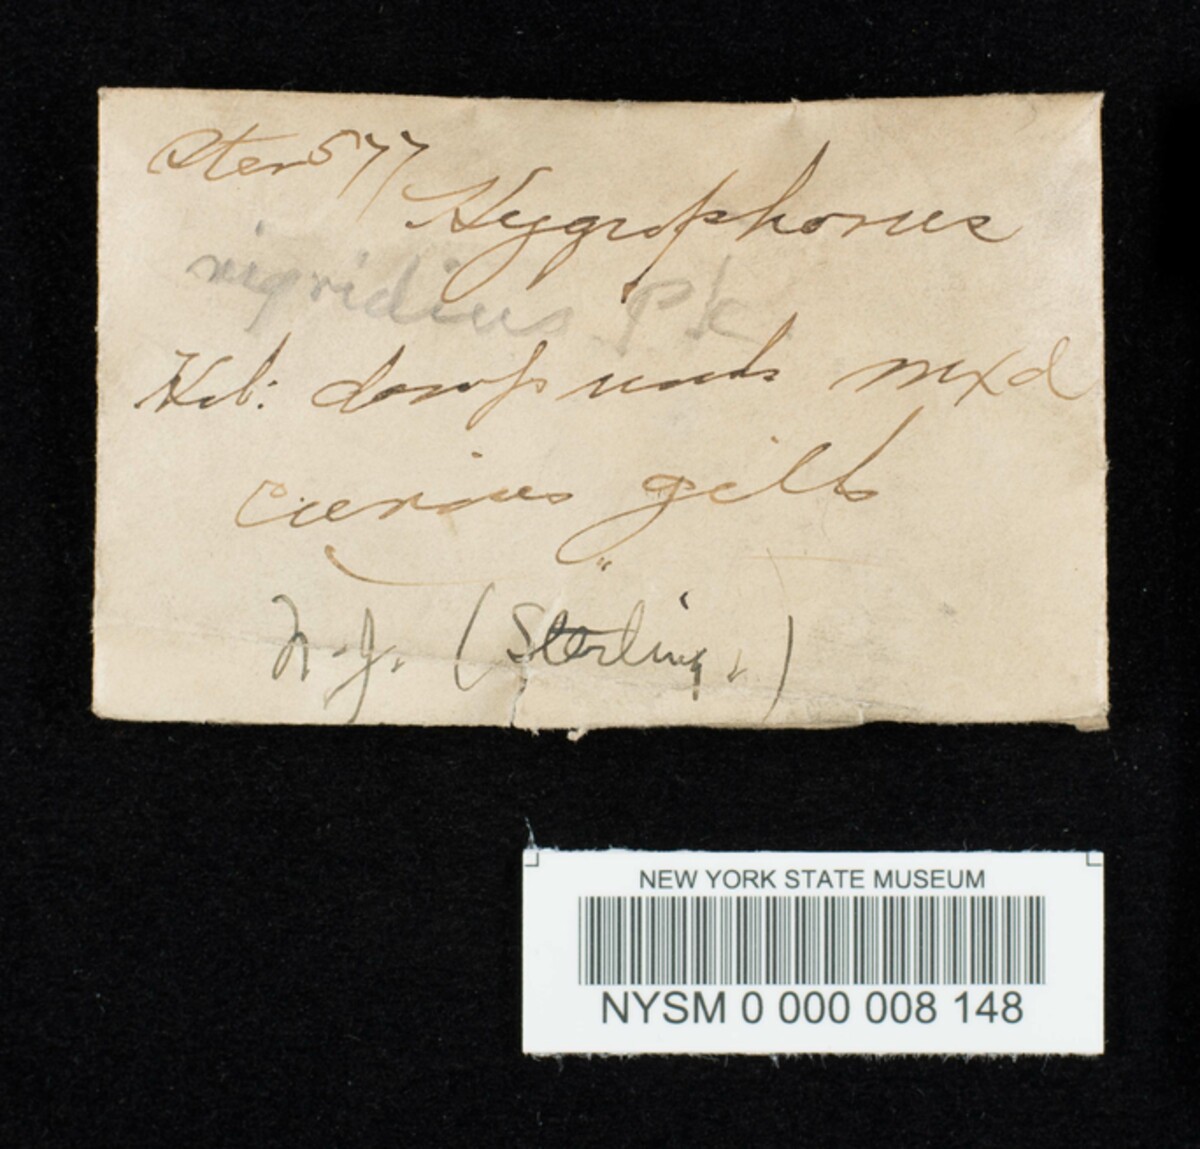 Ster 577 Hygrophorus
nigridius Pk.
Hab: damp woods mxd
curious gills
N.J. (Sterling.)
NEW YORK STATE MUSEUM
NYSM 0 000 008 148